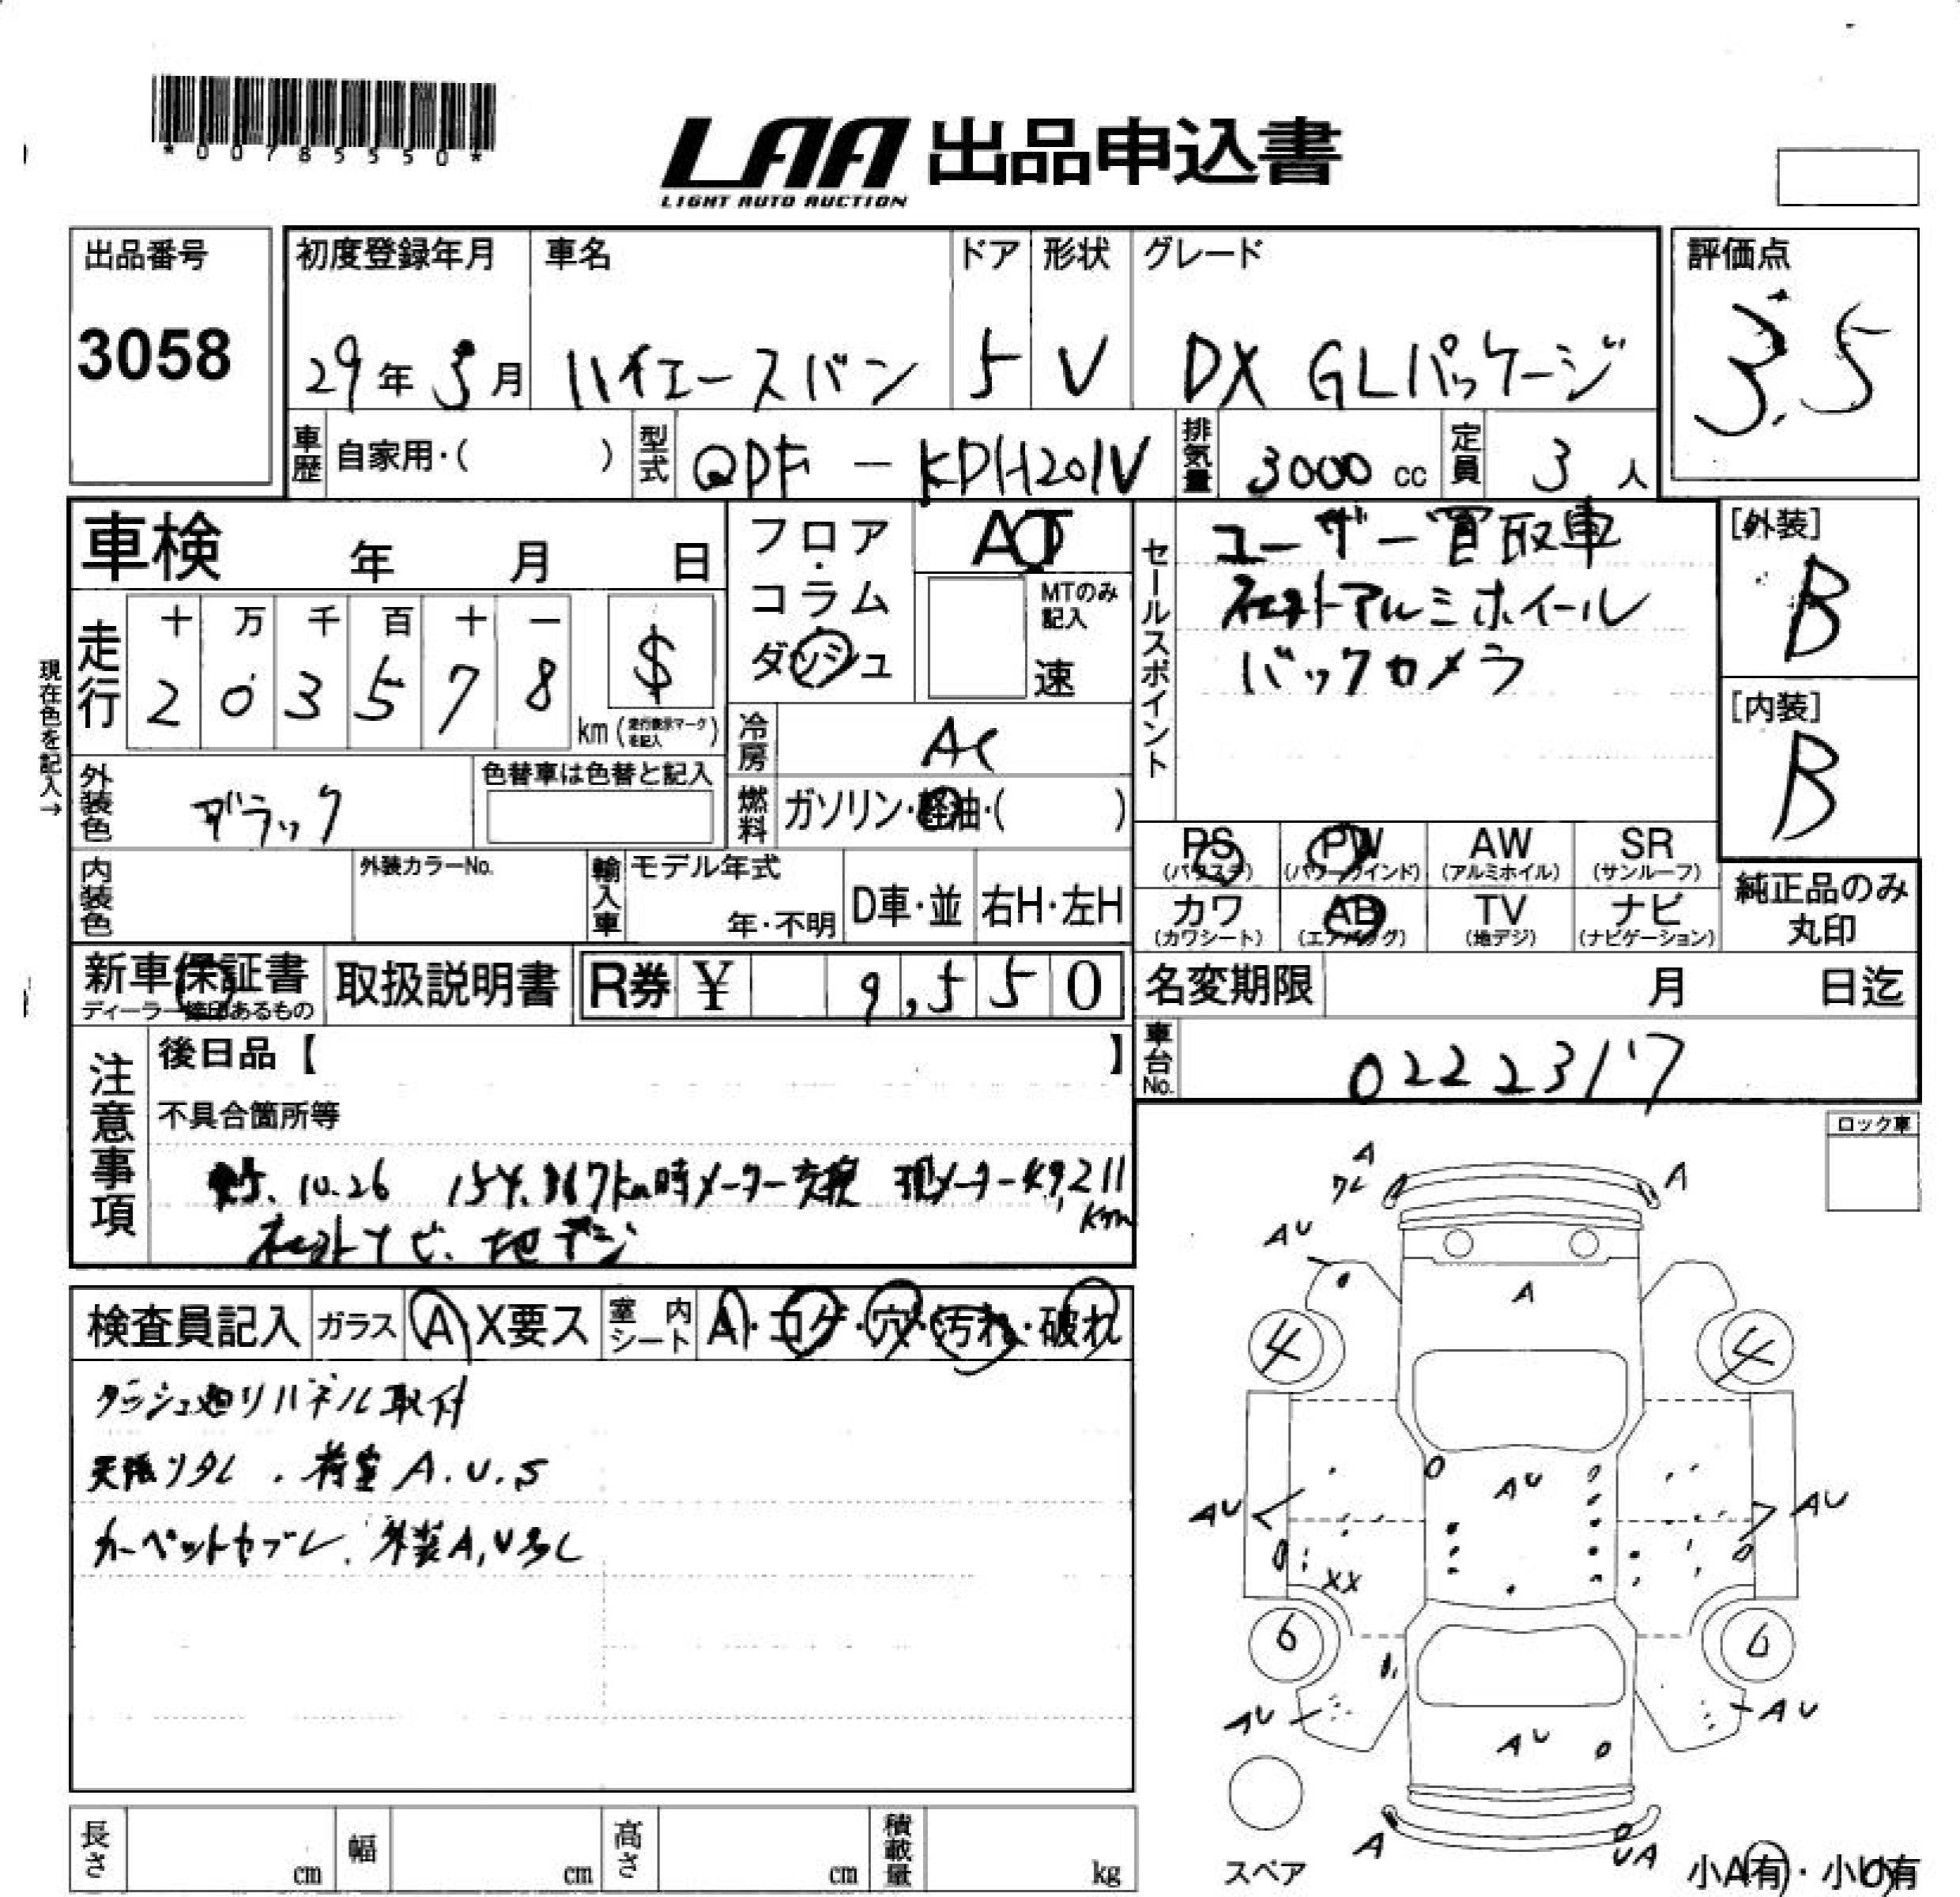 *00785550*
LAA 出品申込書
LIGHT AUTO AUCTION
出品番号
3058
初度登録年月
29年 5月
車名
ハイエースバン
ドア
5
形状
V
グレード
DX GLパッケージ
評価点
3.5
車歴 自家用・( )
型式 QDF - KDH201V
排気量 3000 cc
定員 3 人
車検 年 月 日
走行
十 万 千 百 十 一
2 0 3 5 7 8
$
km (走行表示マークを記入)
現在色を記入→
フロア・コラム・ダッシュ
AT
MTのみ記入
速
冷房 AC
燃料 ガソリン・軽油・( )
外装色 ブラック
色替車は色替と記入
内装色
外装カラーNo.
輸入車 モデル年式
年・不明
D車・並 右H・左H
セールスポイント
ユーザー買取車
社外アルミホイール
バックカメラ
[外装]
B
[内装]
B
PS (パワステ)
PW (パワーウインド)
AW (アルミホイル)
SR (サンルーフ)
カワ (カワシート)
AB (エアバッグ)
TV (地デジ)
ナビ (ナビゲーション)
純正品のみ丸印
新車保証書
ディーラー捺印あるもの
取扱説明書
R券 ¥ 9,550
名変期限 月 日迄
車台No. 0222317
注意事項
後日品【 】
不具合箇所等
5.10.26 154,367km時メーター交換 現メーター49,211km
社外ナビ、地デジ
検査員記入
ガラス A X要ス
室内シート A・コゲ・穴・汚れ・破れ
ダッシュ廻りパネル取付
天張リタレ . 荷室 A.U.S
カーペットヤブレ、外装A,U多し
ロック車
A
ワレ
A
AU
A
4
4
AU
AU
AU
XX
6
6
AU
AU
AU
A
UA
スペア
小A有・小U有
長さ cm
幅 cm
高さ cm
積載量 kg